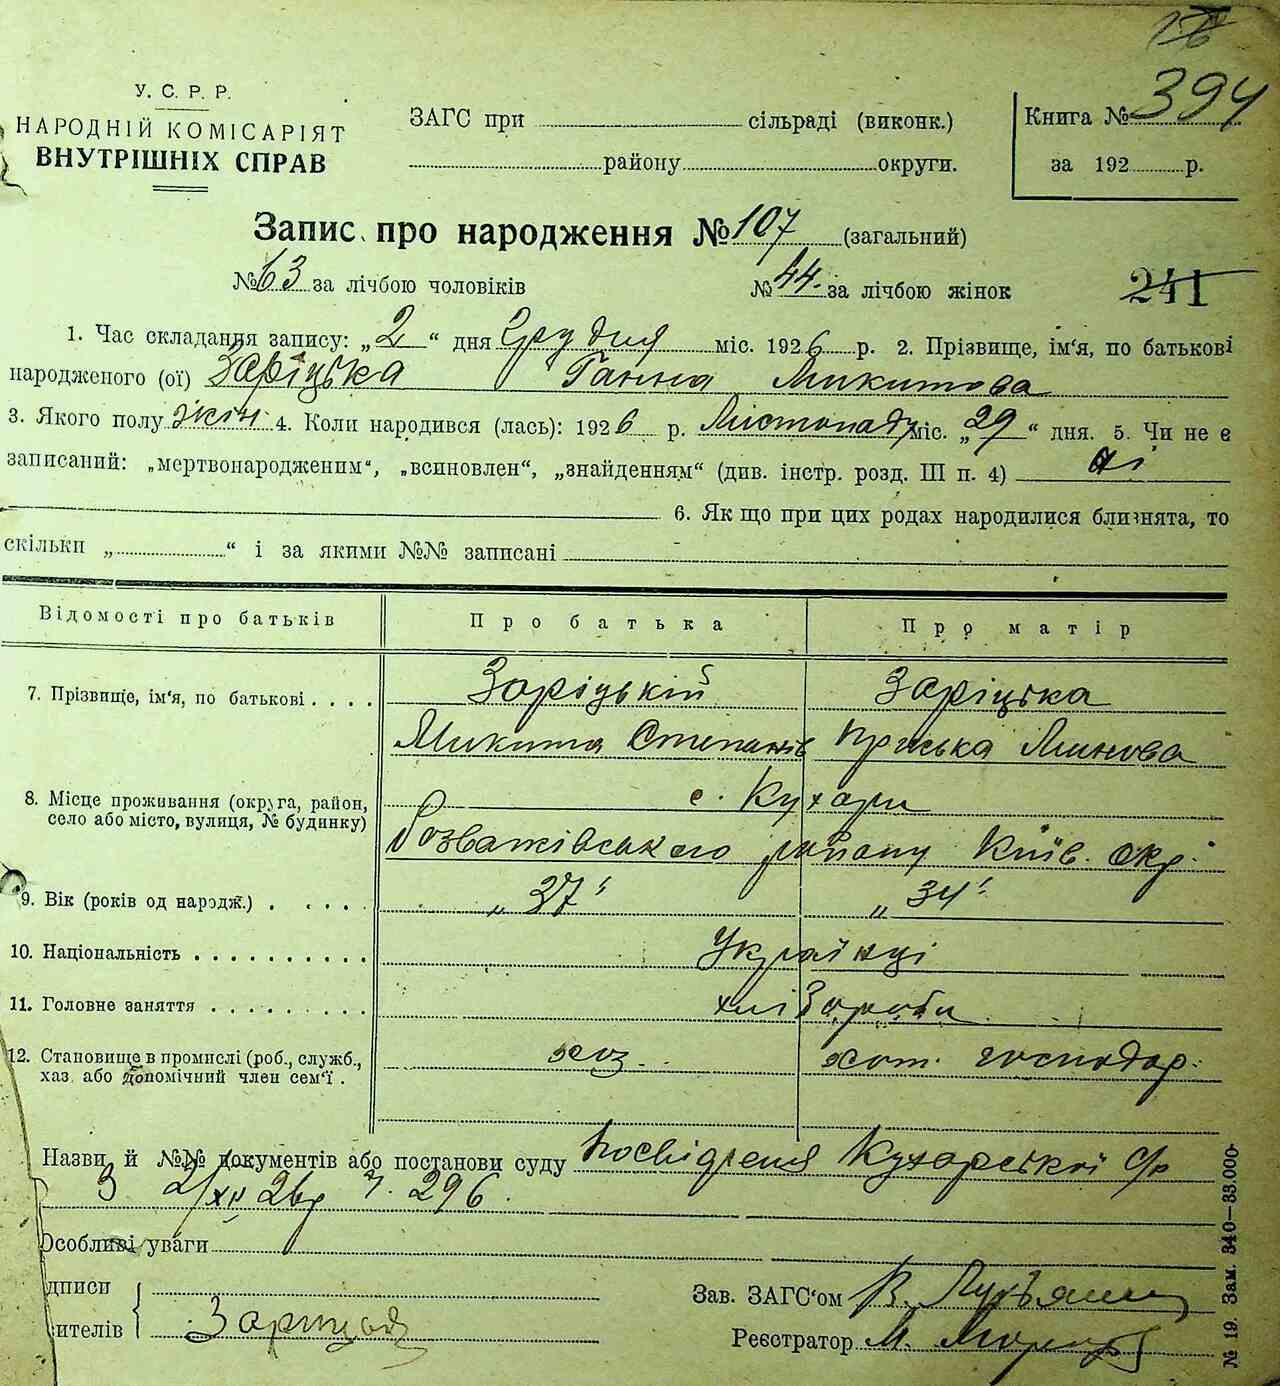 394
У. С. Р. Р.
НАРОДНІЙ КОМІСАРІЯТ
ВНУТРІШНІХ СПРАВ
ЗАГС при сільраді (виконк.)
району округи.
Книга №
за 192 р.
Запис про народження № 107 (загальний)
№ 63 за лічбою чоловіків № 44. за лічбою жінок 241
1. Час складання запису: „2“ дня Грудня міс. 1926 р. 2. Прізвище, ім‘я, по батькові
народженого (ої) Заріцька Ганна Микитова
3. Якого полу жін. 4. Коли народився (лась): 1926 р. Листопаду міс. „29“ дня. 5. Чи не є
записаний: „мертвонародженим“, „всиновлен“, „знайденням“ (див. інстр. розд. III п. 4) ні
6. Як що при цих родах народилися близнята, то
скільки „ “ і за якими №№ записані
Відомості про батьків Про батька Про матір
7. Прізвище, ім‘я, по батькові . . . . Заріцький Заріцька
Микита Степанів Приська Минова
8. Місце проживання (округа, район, с. Кухари
село або місто, вулиця, № будинку) Розважівського району Київ. окр.
9. Вік (років од народж.) . . . . . „37“ „34“
10. Національність . . . . . . . . . . Українці
11. Головне заняття . . . . . . . . . хлібороби
12. Становище в промислі (роб., служб., хоз. госпо­дар.
хаз. або допомічний член сем‘ї .
Назви й №№ документів або постанови суду Посвідченя Кухарської с/р
З 2/XII 26р ч. 296.
Особливі уваги
дписи
ителів
Зав. ЗАГС‘ом В.
Реєстратор М.
№ 19. Зам. 340—33.000